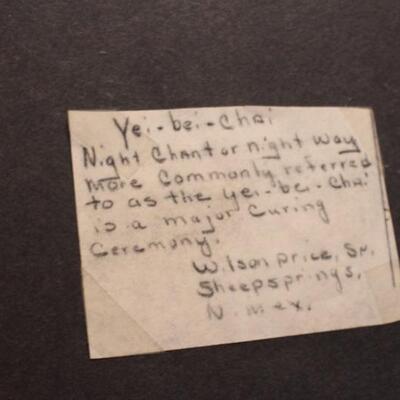 Yei-bei-chai
Night Chant or night way
more commonly referred
to as the yei-bei-chai
is a major curing
ceremony.
Wilson price, Sr.
Sheepsprings,
N. mex.